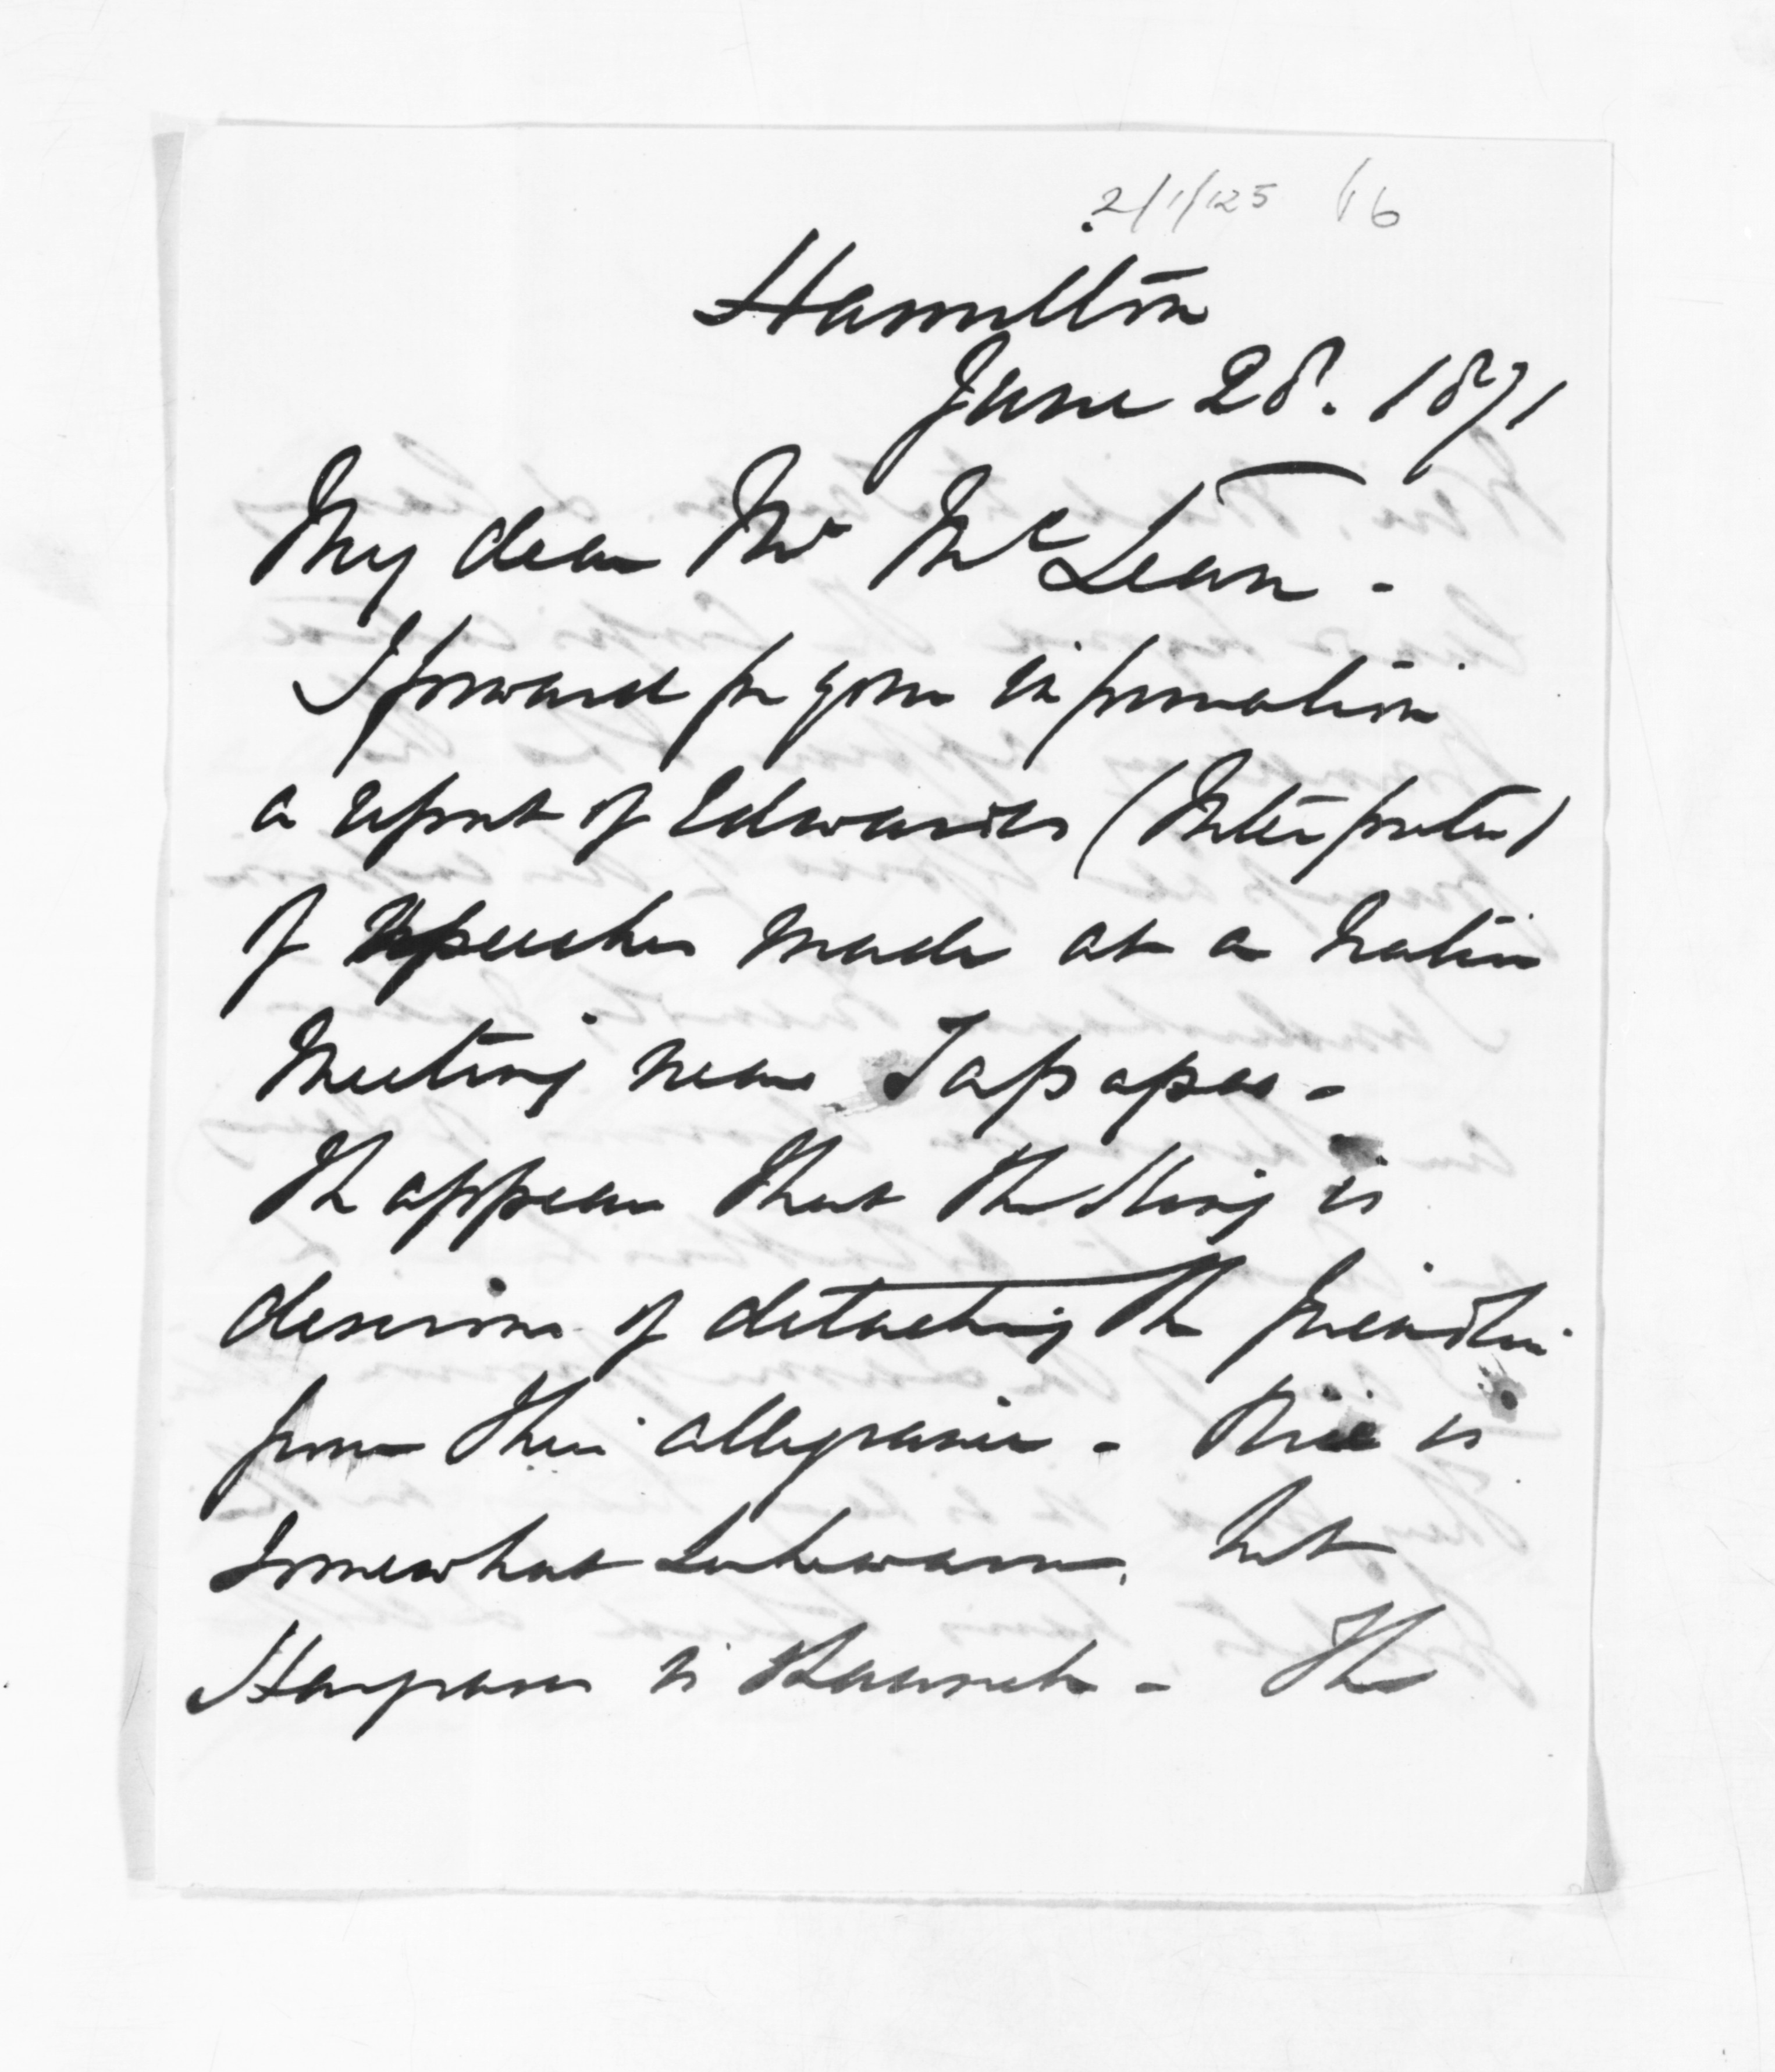 2/1/125 16
Hamilton
June 28. 1871
My dear Mr McLean -
I forward for your information
a report of Edwards (Interpreter)
of speeches made at a Native
Meeting near Tapapa -
It appears that the King is
desirous of detaching the friendlies
from their allegiance -
is
somewhat lukewarm, but
Hargraves is staunch - The